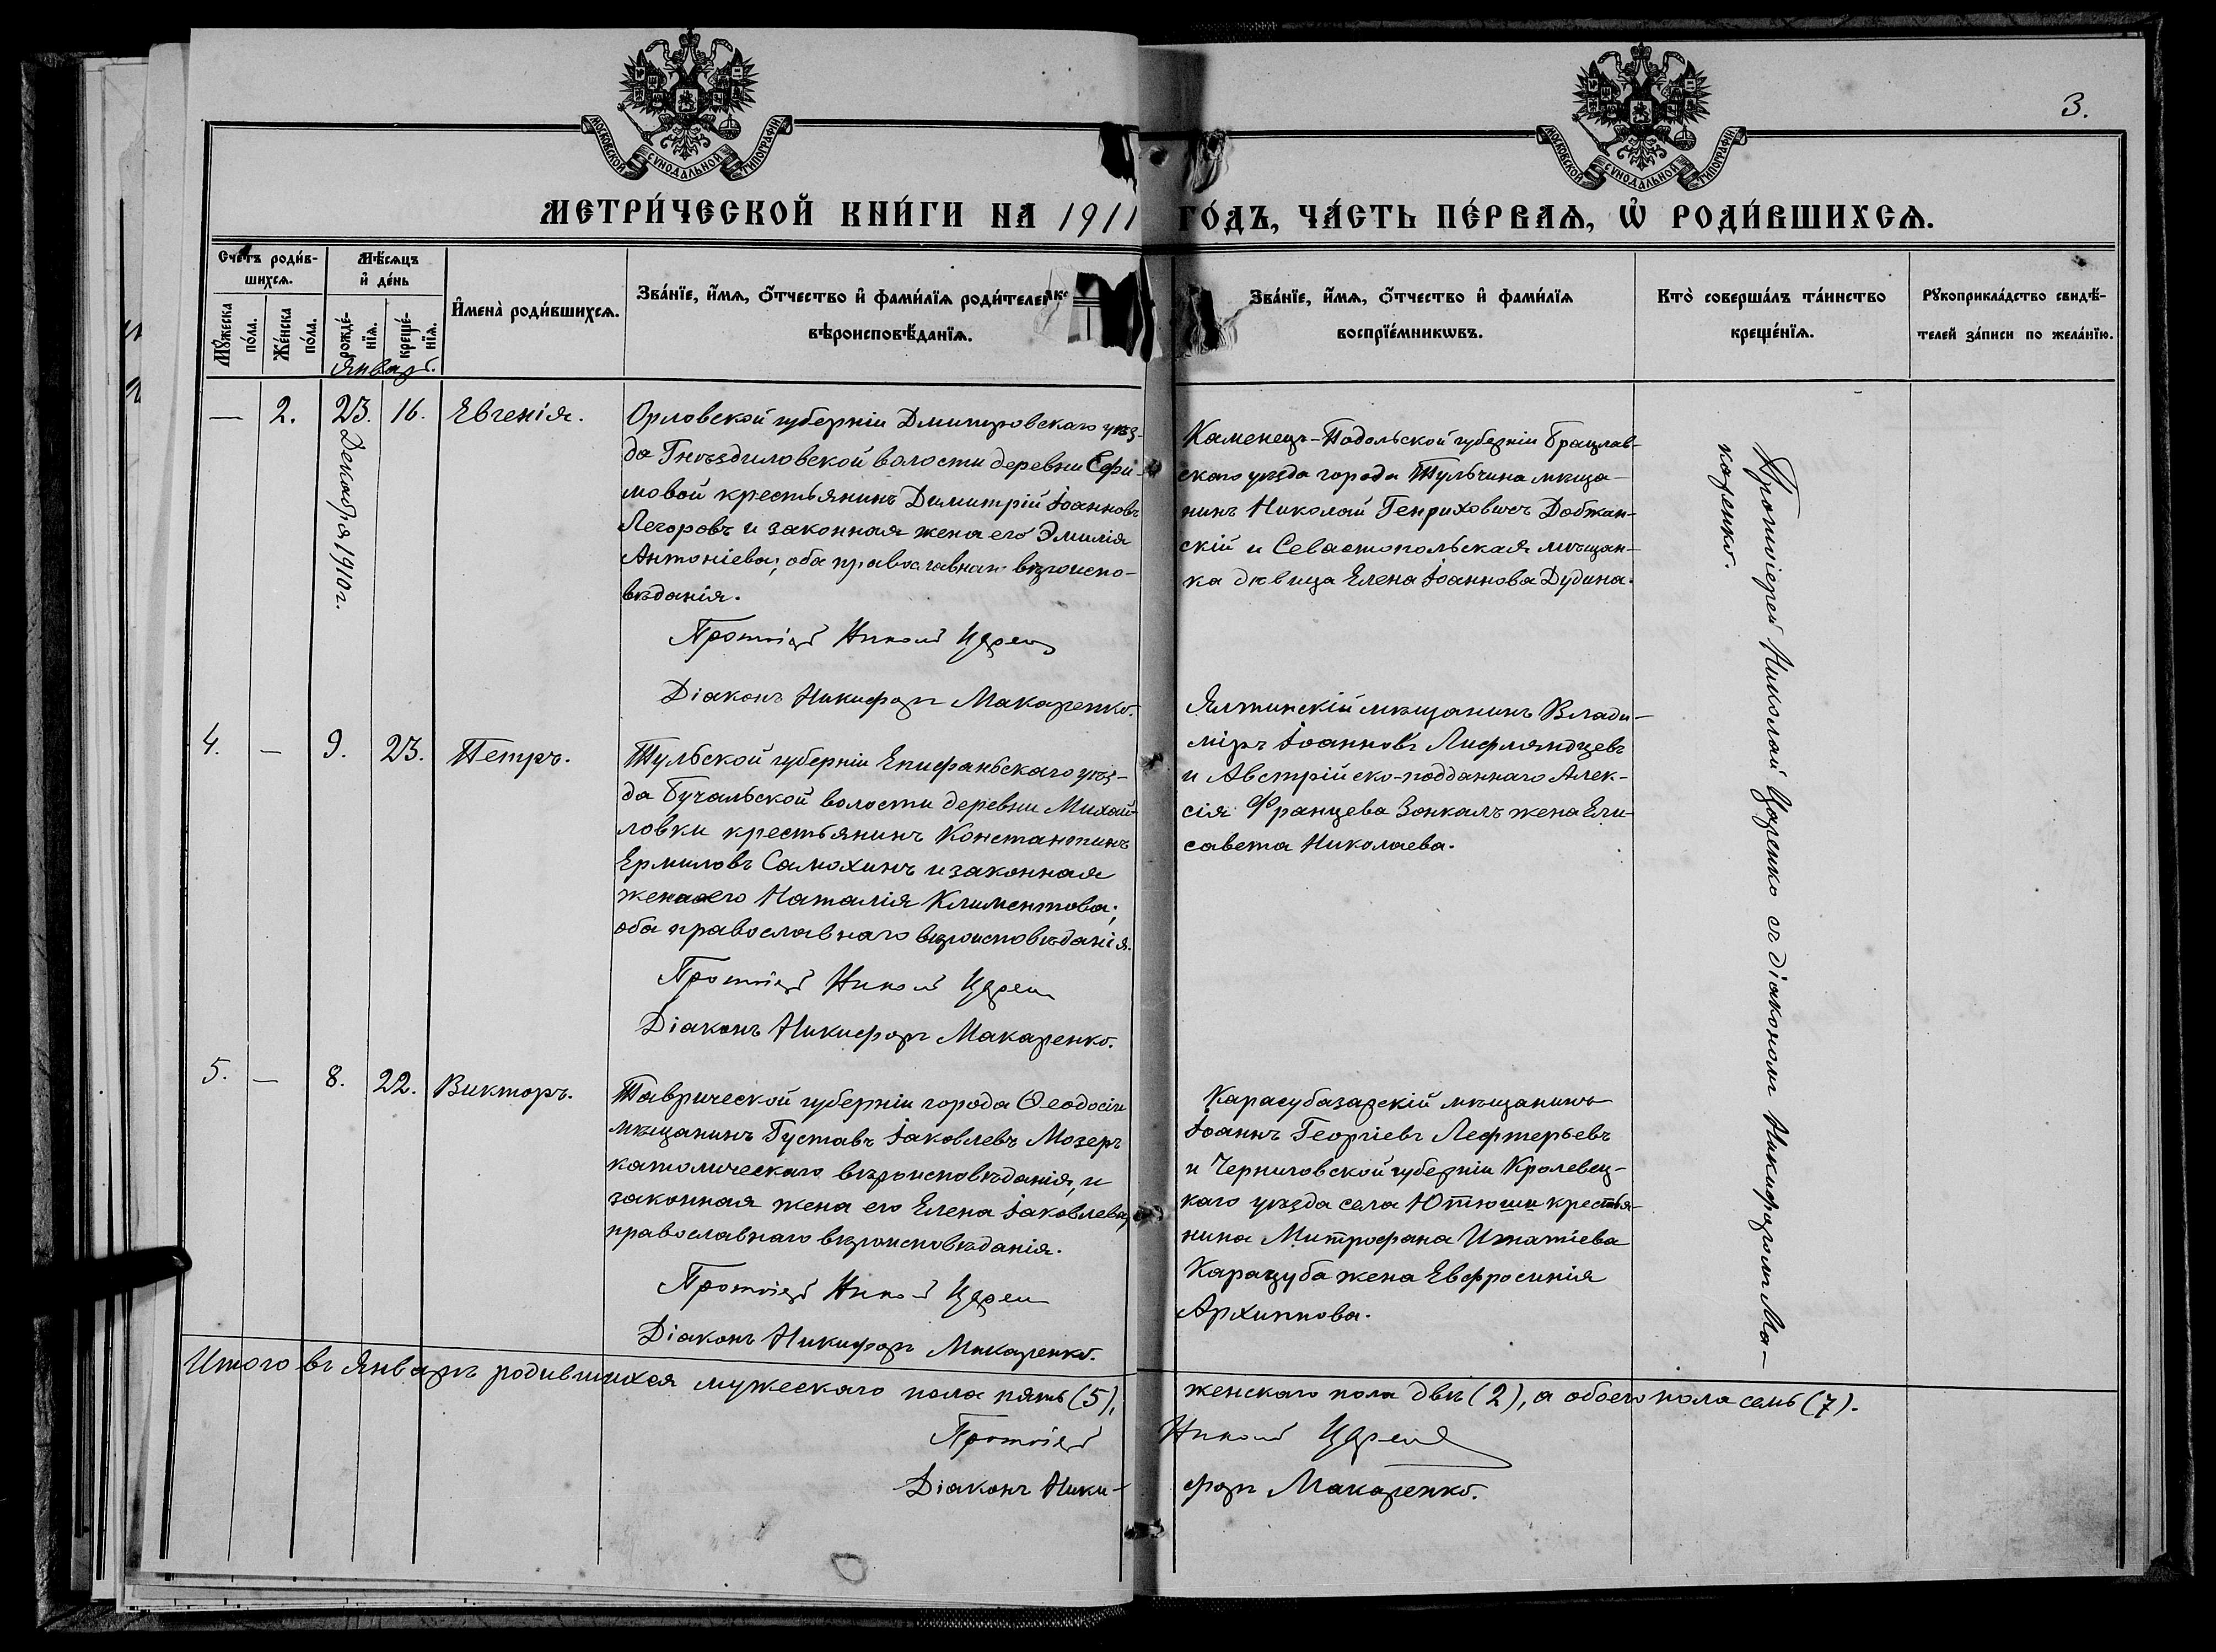 МОСКОВСКОЙ СѴНОДАЛЬНОЙ ТИПОГРАФІИ
МОСКОВСКОЙ СѴНОДАЛЬНОЙ ТИПОГРАФІИ
3.
МЕТРИ́ЧЕСКОЙ КНИ́ГИ НА 1911 ГО́ДЪ, ЧА́СТЬ ПЕ́РВАѦ, Ѡ҆ РОДИ́ВШИХСѦ.
Сче́тъ роди́в-
шихсѧ.
Мꙋ́жеска
по́ла.
Же́нска
по́ла.
Мѣ́сѧцъ
и҆ де́нь
рожде́-
нїѧ.
креще́-
нїѧ.
Январь.
И҆мена̀ роди́вшихсѧ.
Зва́нїе, и҆́мѧ, ѻ҆́тчество и҆ фами́лїѧ роди́телей
вѣроисповѣ́данїѧ.
Зва́нїе, и҆́мѧ, ѻ҆́тчество и҆ фами́лїѧ
воспрїе́мникѡвъ.
Кто̀ соверша́лъ та́инство
креще́нїѧ.
Рꙋкоприкла́дство свидѣ́-
телей за́писи по жела́нїю.
— 2. 23. 16. Евгенія.
Декабря 1910 г.
Орловской губерніи Дмитровскаго уѣз-
да Гнѣздиловской волости деревни Ефи-
мовой крестьянинъ Димитрій Іоанновъ
Легоровъ и законная жена его Эмилія
Антоніева; оба православнаго вѣроиспо-
вѣданія.
Протоіерей Николай Царенко
Діаконъ Никифоръ Макаренко.
Каменецъ-Подольской губерніи Брацлав-
скаго уѣзда города Тульчина мѣща-
нинъ Николай Генриховичъ Добжан-
скій и Севастопольская мѣщан-
ка дѣвица Елена Іоаннова Дудина.
Протоіерей Николай Царенко съ діакономъ Никифоромъ Ма-
каренко.
4. — 9. 23. Петръ.
Тульской губерніи Епифаньскаго уѣз-
да Бучальской волости деревни Михай-
ловки крестьянинъ Константинъ
Ермиловъ Самохинъ и законная
жена его Наталія Климентова;
оба православнаго вѣроисповѣданія.
Протоіерей Николай Царенко
Діаконъ Никифоръ Макаренко.
Ялтинскій мѣщанинъ Влади-
міръ Іоанновъ Лифляндцевъ
и Австрійско-подданнаго Алек-
сія Францева Зонкалъ жена Ели-
савета Николаева.
5. — 8. 22. Викторъ.
Таврической губерніи города Ѳеодосіи
мѣщанинъ Густавъ Іаковлевъ Мозеръ
католическаго вѣроисповѣданія, и
законная жена его Елена Іаковлева,
православнаго вѣроисповѣданія.
Протоіерей Николай Царенко
Діаконъ Никифоръ Макаренко.
Карасубазарскій мѣщанинъ
Іоаннъ Георгіевъ Лефтерьевъ
и Черниговской губерніи Кролевец-
каго уѣзда села Ютюши крестья-
нина Митрофана Игнатіева
Карацуба жена Евфросинія
Архиппова.
Итого въ Январѣ родившихся мужескаго пола пять (5), женскаго пола двѣ (2), а обоего пола семь (7).
Протоіерей Николай Царенко
Діаконъ Ники-форъ Макаренко.